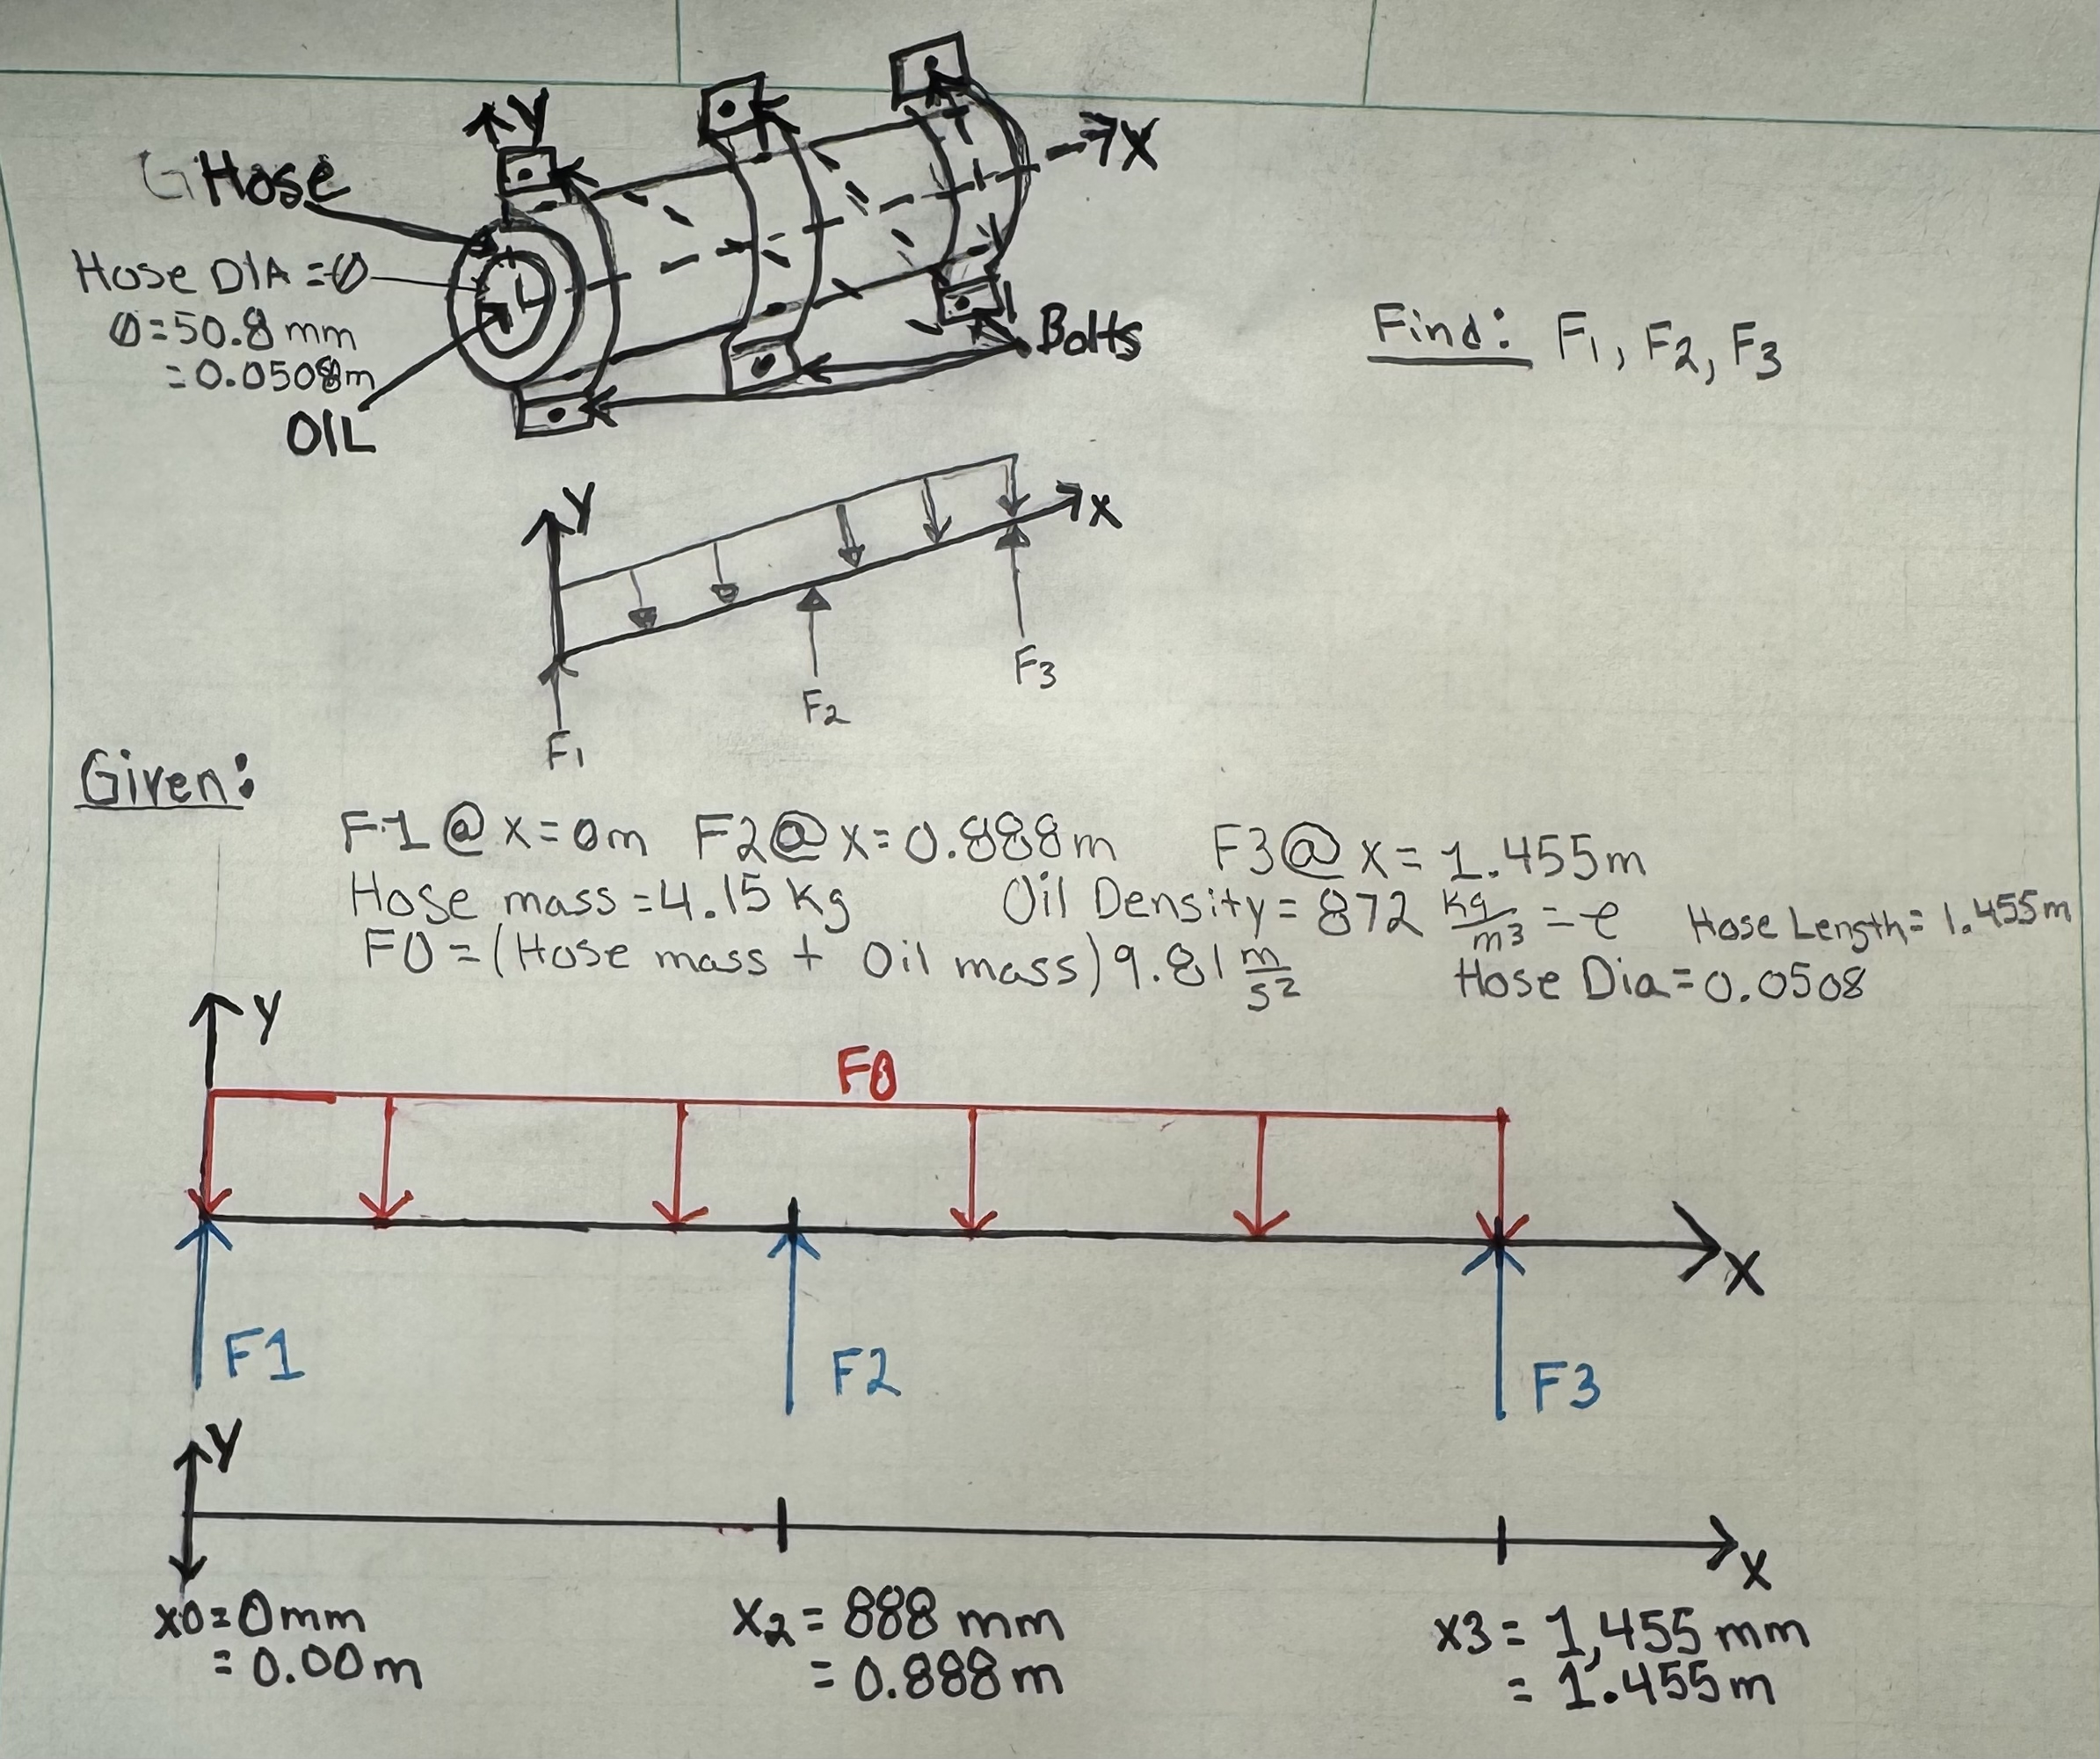 Y
X
GHose
Hose DIA = Ø
Ø=50.8 mm
=0.0508m
OIL
Bolts
Find: F1, F2, F3
Y
X
F1
F2
F3
Given:
F1 @ x=0m F2@ x=0.888m F3@ x= 1.455m
Hose mass =4.15 kg Oil Density= 872 kg/m3 = ρ Hose Length= 1.455m
F0 = (Hose mass + Oil mass) 9.81 m/s2 Hose Dia=0.0508
Y
F0
X
F1
F2
F3
Y
X
x0=0mm
= 0.00m
X2= 888 mm
= 0.888m
x3= 1,455mm
= 1.455m